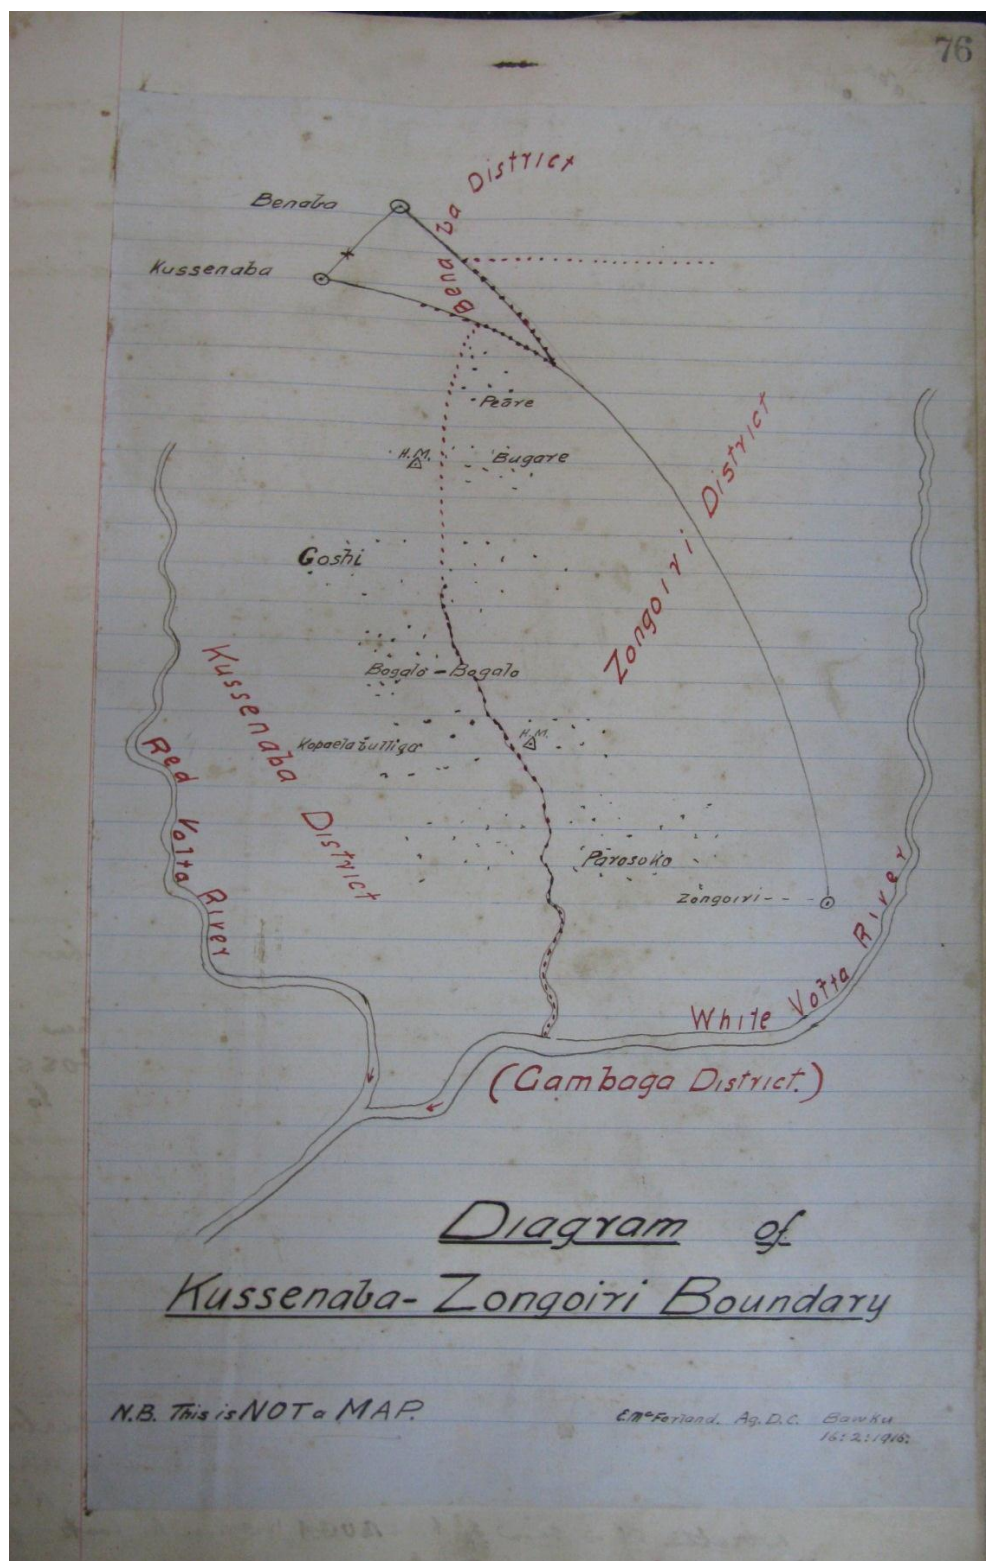 76
Benaba
District
Benaba
Kussenaba
Peore
H.M.
Bugare
Zongoiri District
Goshi
Kussenaba District
Bogalo - Bogalo
H.M.
Red Volta River
Parosoko
Zongoiri
White Volta River
(Gambaga District.)
Diagram of
Kussenaba-Zongoiri Boundary
N.B. This is NOT a MAP.
Ag. D.C. Bawku
16:2:1916: